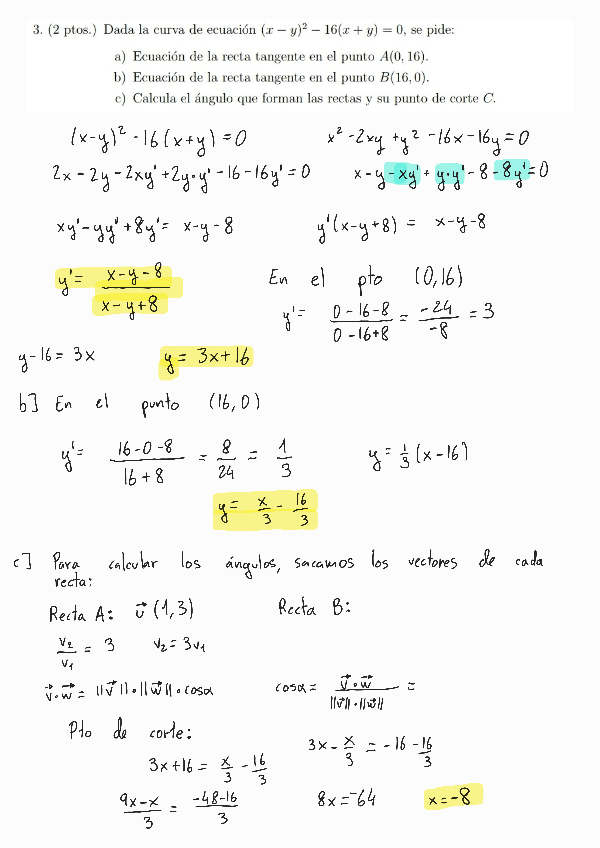 3. (2 ptos.) Dada la curva de ecuación (x − y)² − 16(x + y) = 0, se pide:
a) Ecuación de la recta tangente en el punto A(0, 16).
b) Ecuación de la recta tangente en el punto B(16, 0).
c) Calcula el ángulo que forman las rectas y su punto de corte C.
(x-y)² - 16(x+y) = 0 x² - 2xy + y² - 16x - 16y = 0
2x - 2y - 2xy' + 2y·y' - 16 - 16y' = 0 x - y - xy' + y·y' - 8 - 8y' = 0
xy' - yy' + 8y' = x - y - 8 y'(x - y + 8) = x - y - 8
y' = (x - y - 8)/(x - y + 8) En el pto (0,16)
y' = (0 - 16 - 8)/(0 - 16 + 8) = -24/-8 = 3
y - 16 = 3x y = 3x + 16
b] En el punto (16,0)
y' = (16 - 0 - 8)/(16 + 8) = 8/24 = 1/3 y = 1/3 (x - 16)
y = x/3 - 16/3
c] Para calcular los ángulos, sacamos los vectores de cada
recta:
Recta A: v⃗ (1,3) Recta B:
v₂/v₁ = 3 v₂ = 3v₁
v⃗·w⃗ = ||v⃗||·||w⃗||·cosα cosα = v⃗·w⃗/(||v⃗||·||w⃗||) =
Pto de corte:
3x + 16 = x/3 - 16/3 3x - x/3 = -16 - 16/3
(9x - x)/3 = (-48 - 16)/3 8x = -64 x = -8